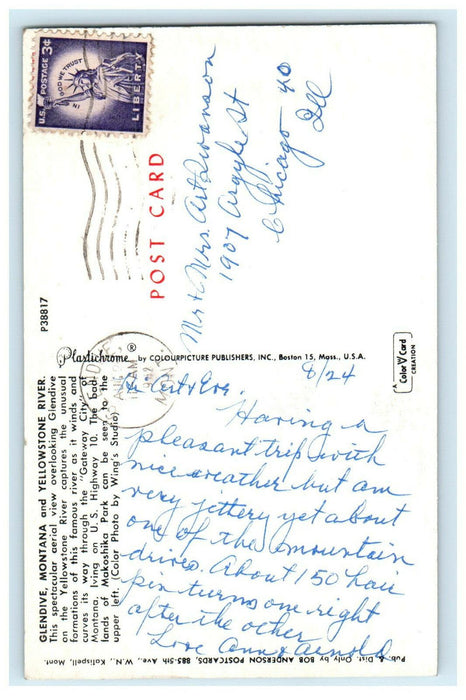 U.S. POSTAGE 3¢
IN GOD WE TRUST
LIBERTY
POST CARD
Mr & Mrs. Art Swanson
1907 Argyle St
Chicago 40
Ill
P38817
Plastichrome ® by COLOURPICTURE PUBLISHERS, INC., Boston 15, Mass., U.S.A.
A
Color Card
CREATION
GLENDIVE, MONTANA and YELLOWSTONE RIVER.
This spectacular aerial view overlooking Glendive
on the Yellowstone River captures the unusual
formations of this famous river as it winds and
curves its way through the "Gateway City" of
Montana, lving on U.S. Highway 10. The bad-
lands of Makoshika Park can be seen to the
upper left. (Color Photo by Wing's Studio)
8/24
Hi Art & Eva.
Having a
pleasant trip with
nice weather but am
very jittery yet about
one of the mountain
drives. About 150 hair
pin turns one right
after the other
Love Ann & Arnold
Pub. & Dist. Only by BOB ANDERSON POSTCARDS, 885-5th Ave., W.N., Kalispell, Mont.